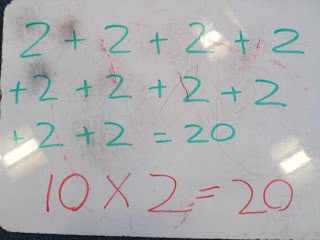 2 + 2 + 2 + 2
+ 2 + 2 + 2 + 2
+ 2 + 2 = 20
10 × 2 = 20